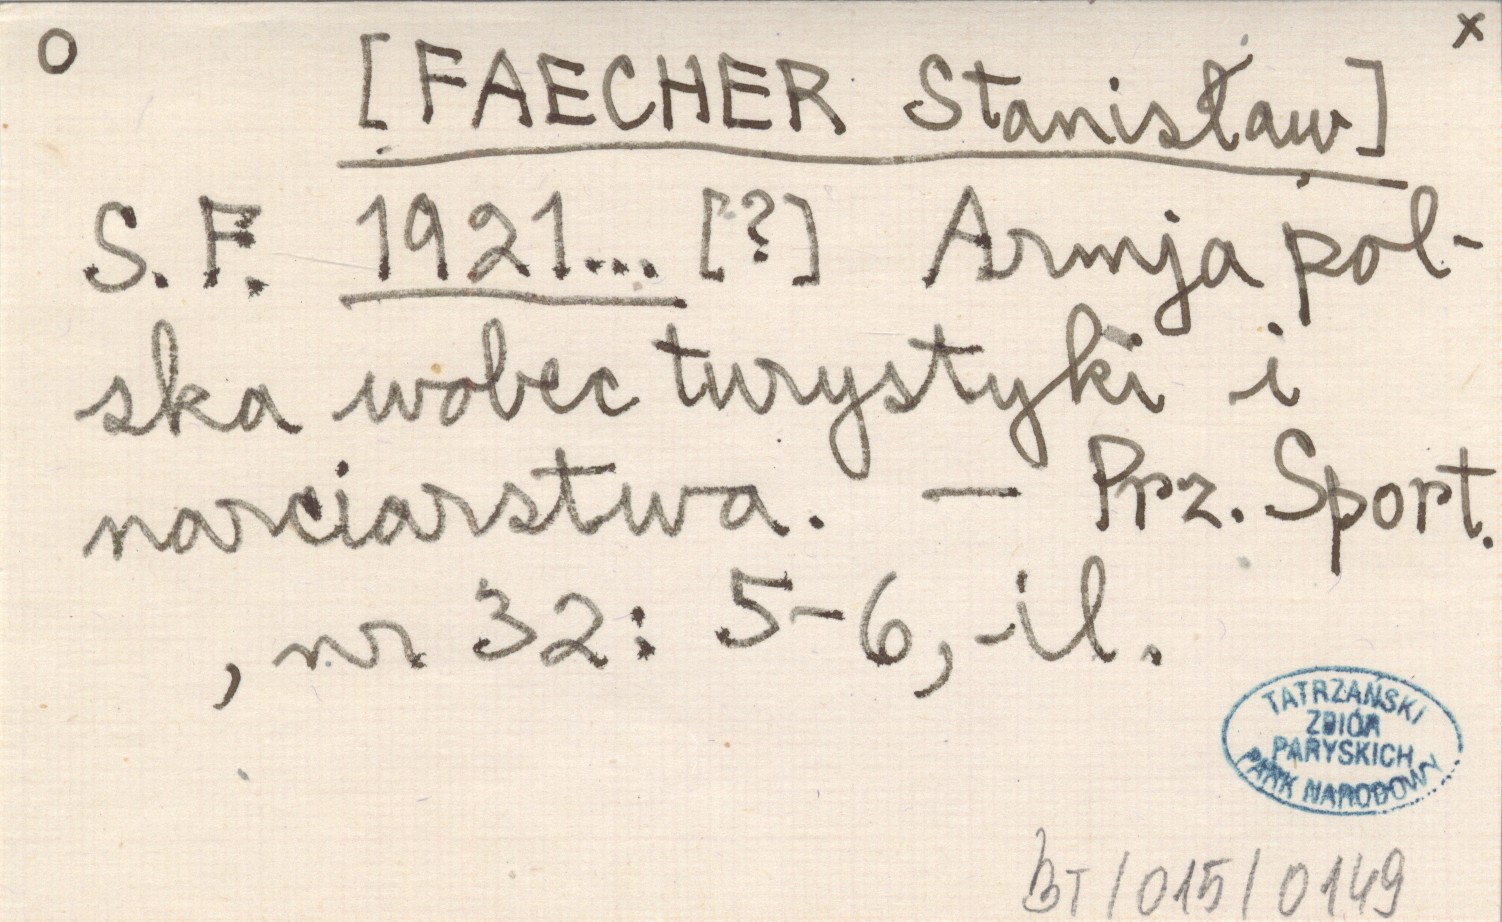 O [FAECHER Stanisław] x
S. F. 1921... [?] Armja pol-
ska wobec turystyki i
narciarstwa. — Prz. Sport.
, nr 32: 5-6, il.
TATRZAŃSKI
ZBIÓR
PARYSKICH
PARK NARODOWY
BT/015/0149